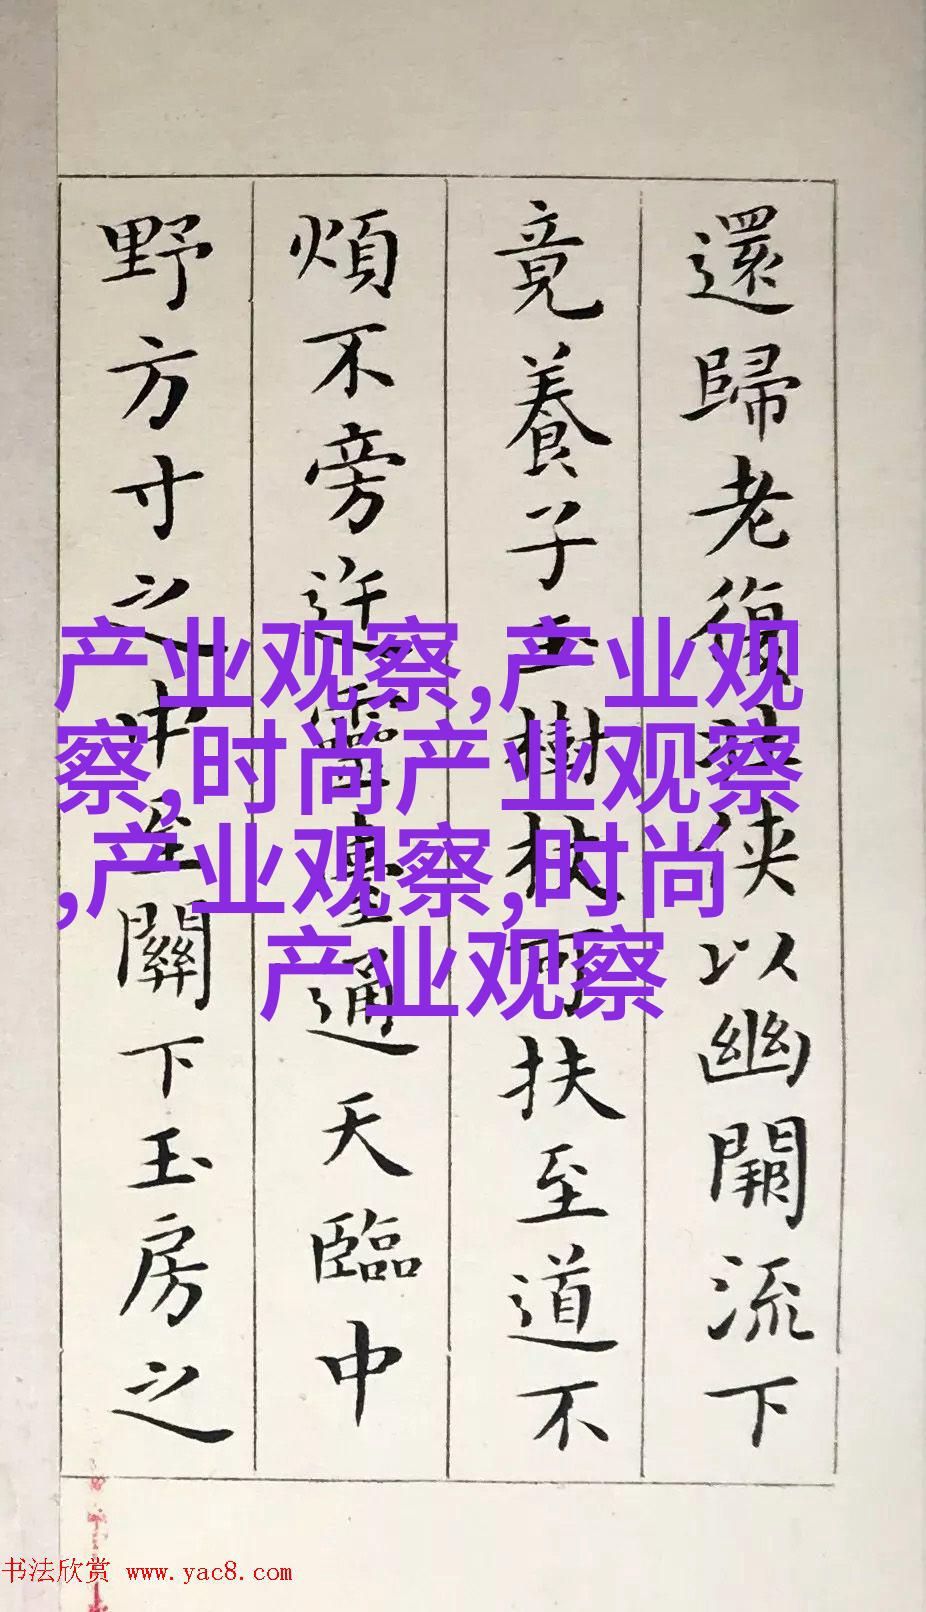 還歸老復壯俠以幽闕流下
竟養子玉樹杖可扶至道不
煩不旁迕靈臺通天臨中
野方寸之中至關下玉房之
产业观察,产业观
察,时尚产业观察
,产业观察,时尚
产业观察
书法欣赏 www.yac8.com